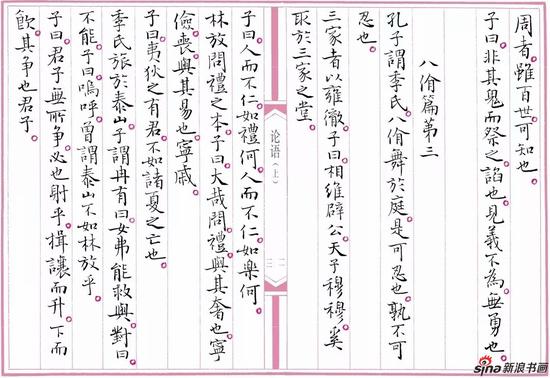 周者雖百世可知也
子曰非其鬼而祭之諂也見義不為無勇也
八佾篇第三
孔子謂季氏八佾舞於庭是可忍也孰不可
忍也
三家者以雍徹子曰相維辟公天子穆穆奚
取於三家之堂
论语（上）
三二
子曰人而不仁如禮何人而不仁如樂何
林放問禮之本子曰大哉問禮與其奢也寧
儉喪與其易也寧戚
子曰夷狄之有君不如諸夏之亡也
季氏旅於泰山子謂冉有曰女弗能救與對曰
不能子曰嗚呼曾謂泰山不如林放乎
子曰君子無所争必也射乎揖讓而升下而
飲其争也君子
sina新浪书画